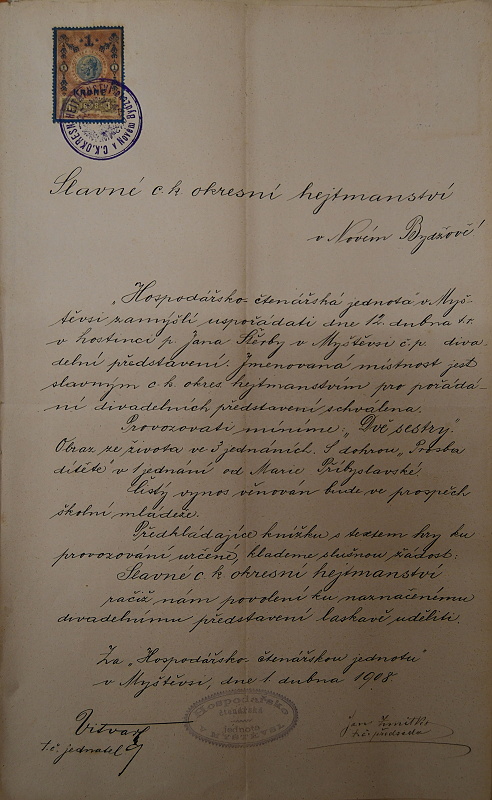 1
KORUNA
C.K. OKRESNÍ HEJTMANSTVÍ
Slavné c. k. okresní hejtmanství
v Novém Bydžově!
„Hospodářsko-čtenářská jednota v Myš-
těvsi zamýšlí uspořádati dne 12. dubna t.r.
v hostinci p. Jana Štěrby v Myštěvsi č.p. diva-
delní představení. Jmenovaná místnost jest
slavným c. k. okres. hejtmanstvím pro pořádá-
ní divadelních představení schválena.
Provozovati míníme: „Dvě sestry.“
Obraz ze života ve 3 jednáních. S dohrou „Prosba
dítěte“ v 1 jednání od Marie Přibyslavské.
Čistý výnos věnován bude ve prospěch
školní mládeže.
Předkládajíce knížku s textem hry ku
provozování určené, klademe slušnou žádost:
Slavné c. k. okresní hejtmanství
račiž nám povolení ku naznačenému
divadelnímu představení laskavě uděliti.
Za „Hospodářsko-čtenářskou jednotu“
v Myštěvsi, dne 1. dubna 1908.
Hospodářsko
čtenářská
jednota
v MYŠTĚVSI
t. č. jednatel
Jan
t. č. předseda